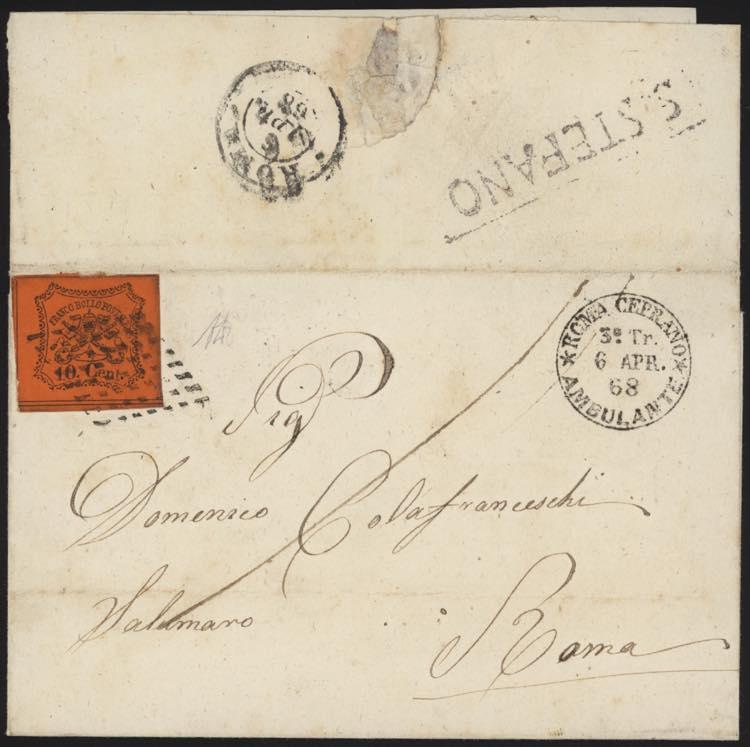 S. STEFANO
ROMA
6
APR
68
FRANCO BOLLO POSTALE
10. Cent.
★ ROMA CEPRANO ★
3ª Tr.
6 APR.
68
AMBULANTE
Sig
Domenico Colafranceschi
Salumaro
Roma